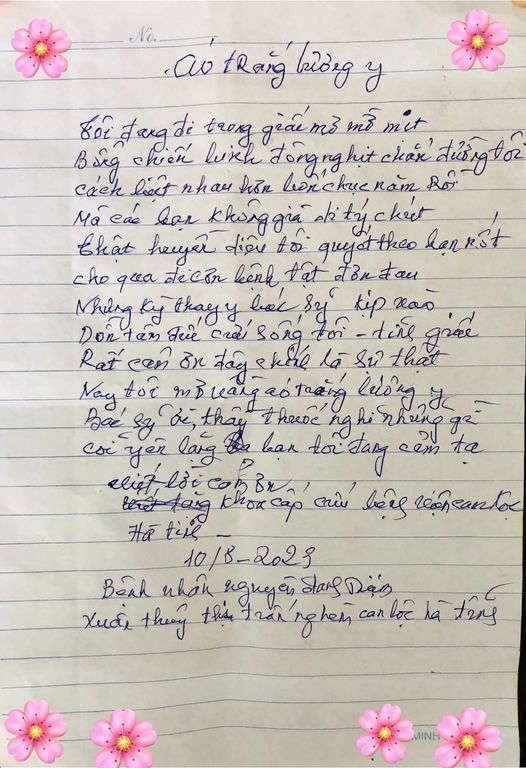 No.
Áo trắng lương y
Tôi đang đi trong giấc mơ mờ mịt
Bỗng chiến binh đông nghịt chắn đường tôi
cách biệt nhau hơn bốn chục năm rồi
Mà các bạn không già đi tý chút
Thật huyền diệu tôi quyết theo bạn nốt
cho qua đi cơn bệnh tật đớn đau
Những kỳ thay y bác sỹ kịp vào
Dồn tâm đức cứu sống tôi - tỉnh giấc
Rất cảm ơn đây chính là sự thật
Nay tôi mơ áo trắng lương y
Bác sỹ ơi, thầy thuốc nghĩ những gì
cõi yên lặng bạn tôi đang cảm tạ
viết lời cảm ơn
khoa cấp cứu bệnh viện can lộc
Hà tĩnh -
10/8-2023
Bệnh nhân nguyễn đăng
Xuân thuỷ thị trấn nghèn can lộc hà tĩnh
MINH